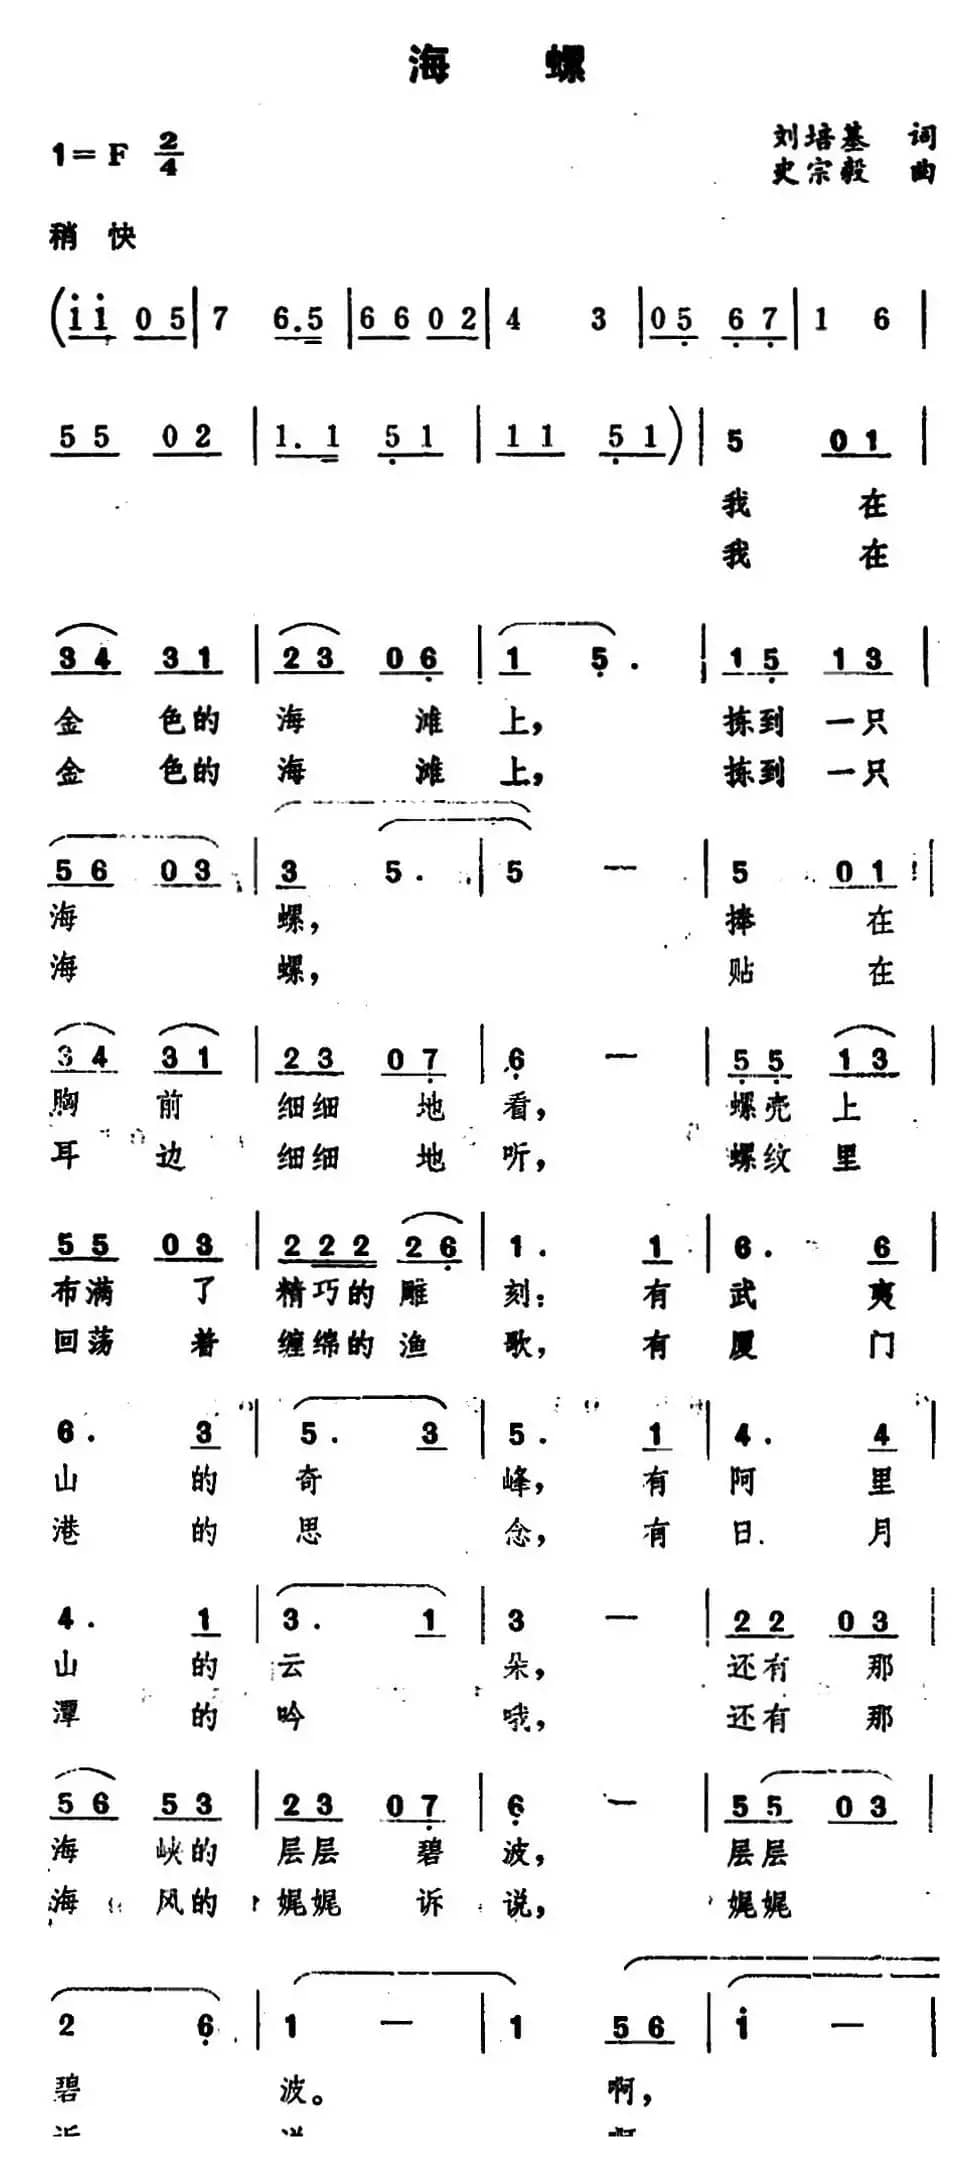 海 螺
1=F 2/4
刘培基 词
史宗毅 曲
稍 快
(i̇ i̇ 0 5 | 7 6.5 | 6 6 0 2 | 4 3 | 0 5̣ 6̣ 7̣ | 1 6 |
5 5 0 2 | 1. 1 5̣ 1 | 1 1 5̣ 1) | 5 0 1 |
我 在
我 在
3 4 3 1 | 2 3 0 6̣ | 1 5̣. | 1 5̣ 1 3 |
金 色的 海 滩 上， 拣到 一只
金 色的 海 滩 上， 拣到 一只
5 6 0 3 | 3 5. | 5 — | 5 0 1 |
海 螺， 捧 在
海 螺， 贴 在
3 4 3 1 | 2 3 0 7̣ | 6̣ — | 5̣ 5̣ 1 3 |
胸 前 细细 地 看， 螺壳 上
耳 边 细细 地 听， 螺纹 里
5 5 0 3 | 2 2 2 2 6̣ | 1. 1 | 6. 6 |
布满 了 精巧的 雕 刻： 有 武 夷
回荡 着 缠绵的 渔 歌， 有 厦 门
6. 3 | 5. 3 | 5. 1 | 4. 4 |
山 的 奇 峰， 有 阿 里
港 的 思 念， 有 日 月
4. 1 | 3. 1 | 3 — | 2 2 0 3 |
山 的 云 朵， 还有 那
潭 的 吟 哦， 还有 那
5 6 5 3 | 2 3 0 7̣ | 6̣ — | 5 5 0 3 |
海 峡的 层层 碧 波， 层层
海 风的 娓娓 诉 说， 娓娓
2 6̣ | 1 — | 1 5 6 | i̇ — |
碧 波。 啊，